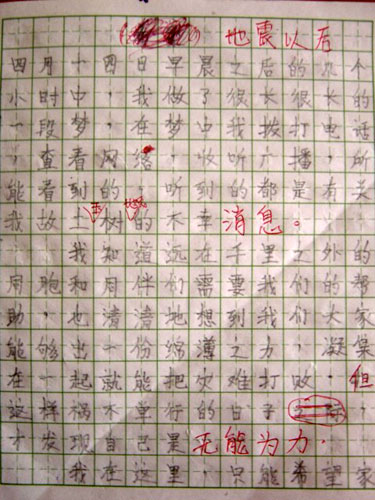 地震以后
四月十四日早晨之后的几个
小时中，我做了很长很长的
一段梦，在梦中我拨打电话
，查看网络，收听广播，所
能看到的，听到的都是有关
我故土玉树地震的不幸消息。
我知道远在千里之外的
同胞和同伴们需要我们的帮
助，也清清地想到我们大家
能够出一份绵薄之力，凝集
在一起就能把灾难打败，但
这样祸不单行的日子
才发现自己是无能为力，
我在这里，只能希望家